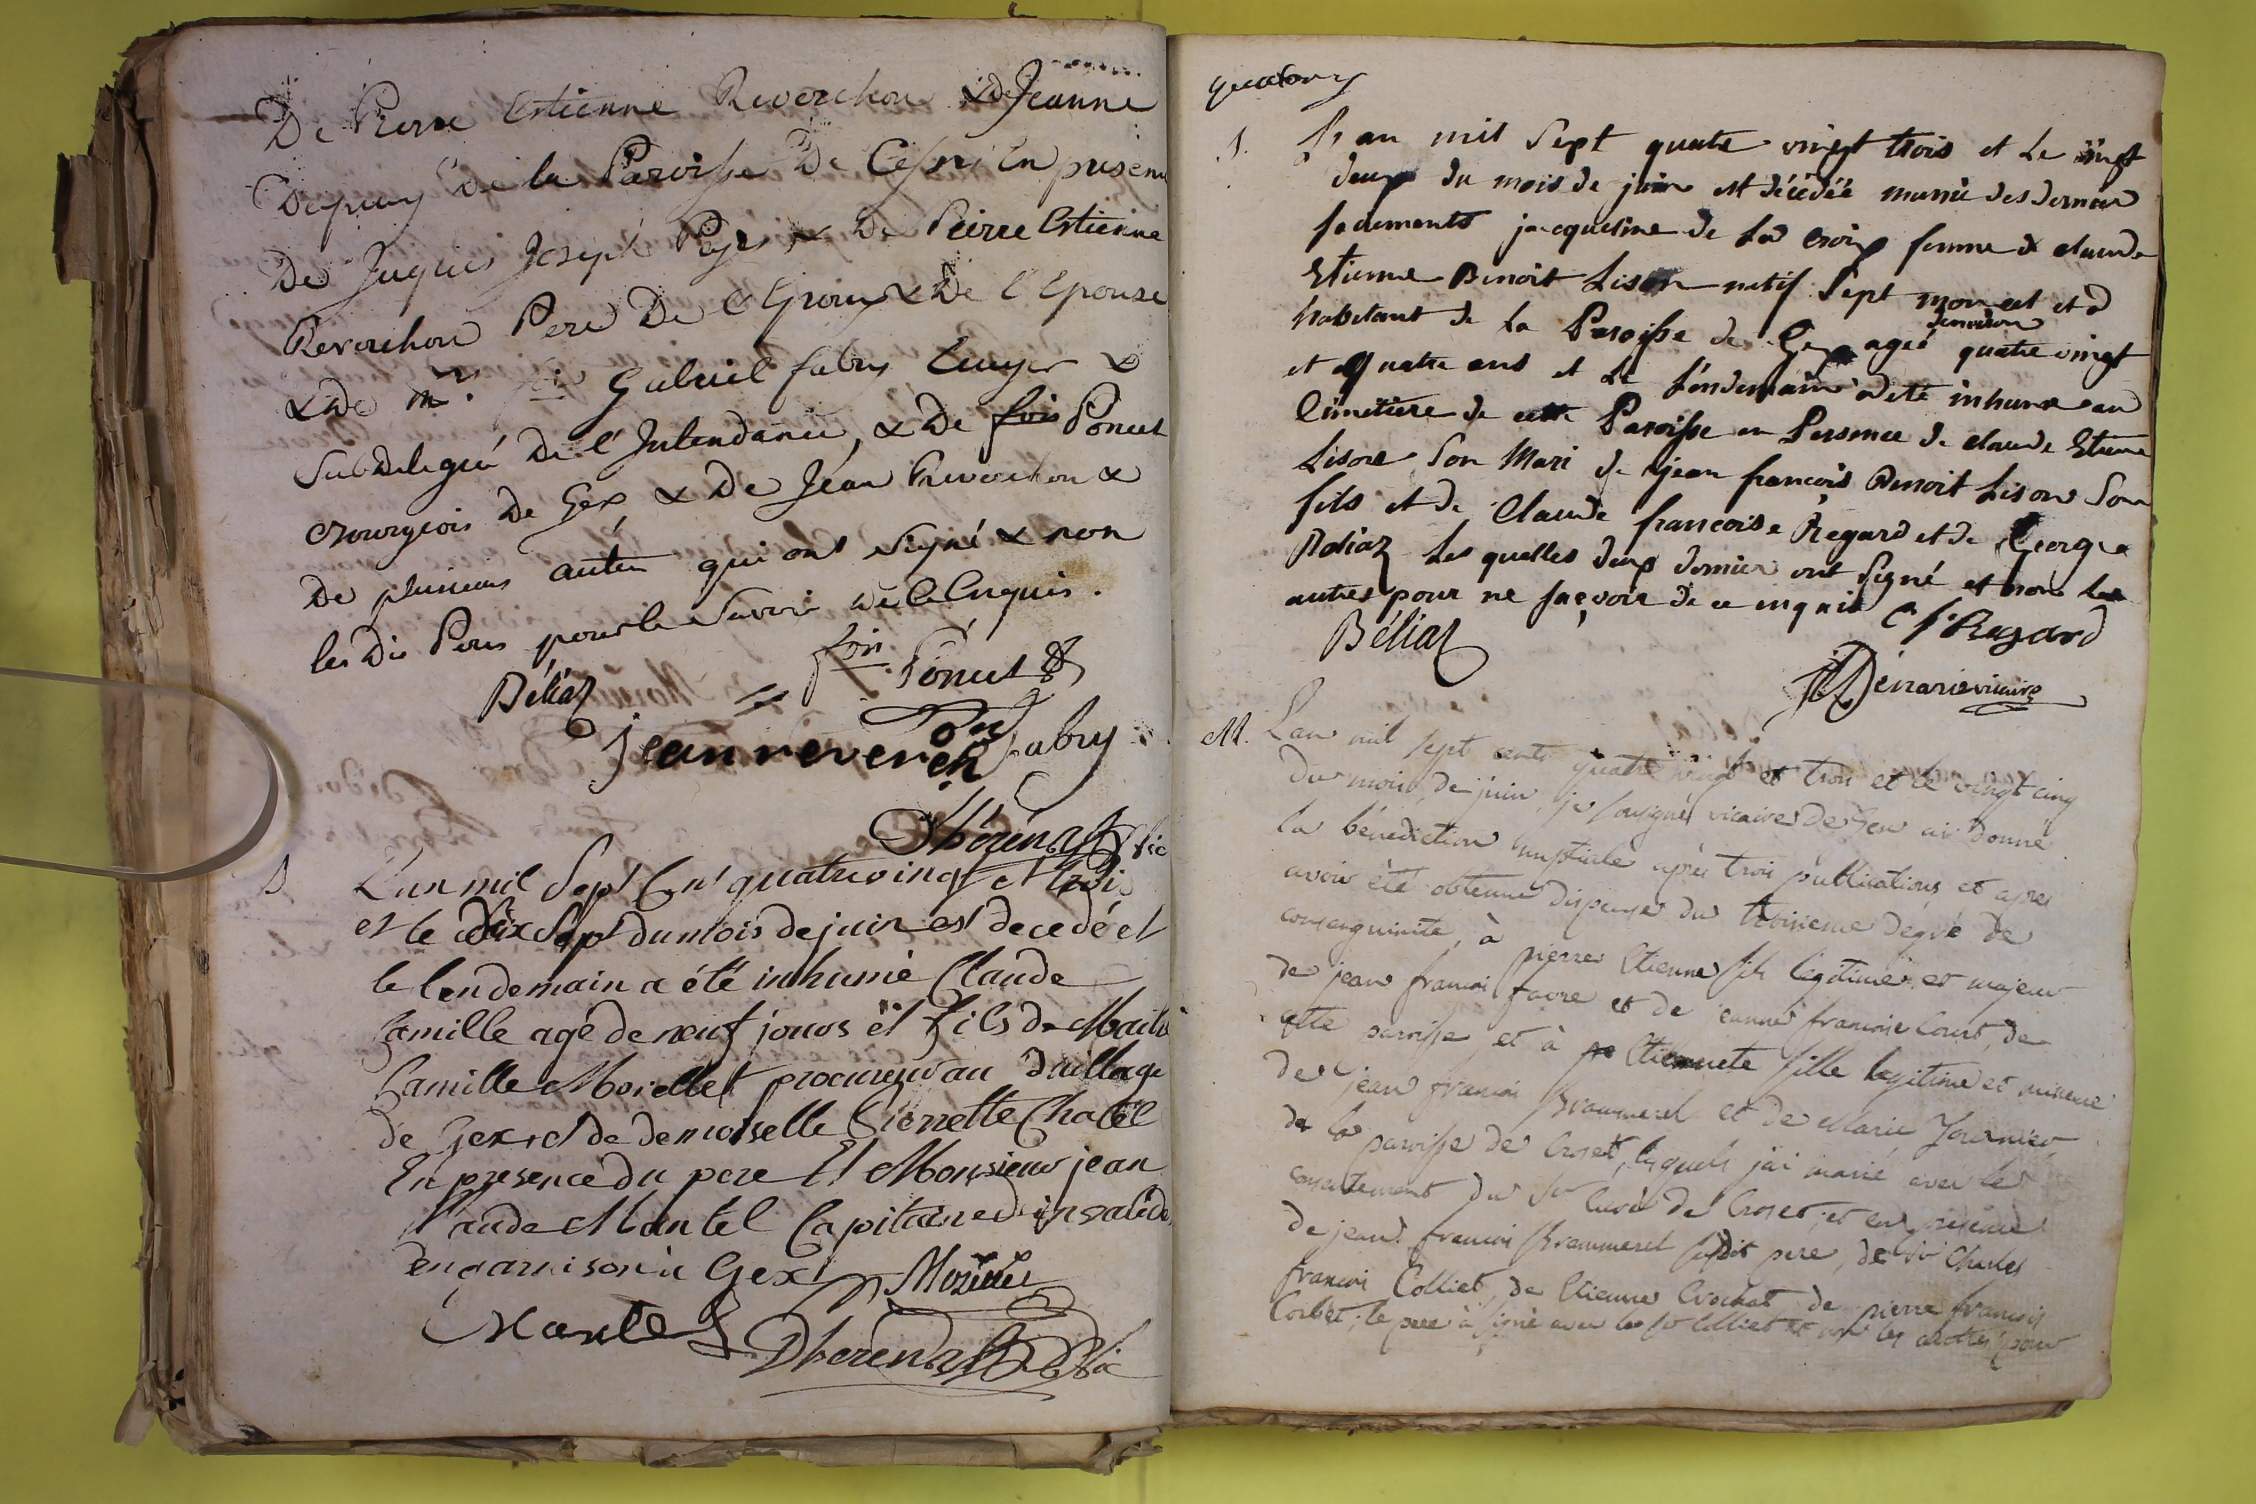 De Pierre Estienne Reverchon & de Jeanne
Dupuy de la Paroisse De Cessy En presence
De Juques Joseph Pages & De Pierre Estienne
Reverchon Pere De l'Epoux & De l'Epouse
& De mr. Gabriel fabry Ecuyer &
SubDelegué De l'Intendance, & De fois Poncet
Bourgeois De Gex & De Jean Reverchon &
De plusieurs autres qui ont signé & non
les Dis Peres pour le Savoir de ce Enquis.
Béliaz fois Poncet
jean reverchon fabry
Dherens Vic
S L'an mil Sept Cent quatrevingt et trois
et le dix Sept du mois de juin est decedé et
le lendemain a été inhumé Claude
Camille agé de neuf jours et fils de Maitre
Camille Morellet procureur au Baillage
de Gex et de demoiselle Pierrette Chatel
En presence du pere Et Monsieur jean
Claude Mantel Capitaine d'invalides
en garnison à Gex
Mantel
Dherens Vic
quatorze
S. L'an mil Sept quatre vingt trois et Le vingt
deux du mois de juin est décédée munie des dernier
sacrements jacqueline de La croix femme de claude
Etienne Benoit Lison natif Sept moncel et
habitant de la Paroisse de Gex agée quatre vingt
environ
et quatre ans et Le Lendemain a été inhumé au
Cimetiere de cette Paroisse en Presence de claude Etienne
Lison Son Mari de jean francois Benoit Lison Son
fils et de Claude francoise Regard et de George
Béliaz Les quelles deux dernier ont Signé et non les
autres pour ne sçavoir de ce enquis
Béliaz Cf Regard
Dénarié vicaire
M. L'an mil sept cents quatre vingt et trois et le vingt cinq
du mois de juin, je soussigné vicaire de Gex ai donné
la bénédiction nuptiale après trois publications et apres
avoir été obtenue dispense du troisieme degré de
consanguinité, à pierre Etienne fils légitime et majeur
de jean francois favre et de jeanne francoise Court, de
cette paroisse et à Etiennete fille legitime et mineure
de jean francois Brammerel et de Marie Journier
de la paroisse de Croset, lesquels j'ai marié avec le
consentement du Sr Curé de Croset; et en présence
de jean francois Brammerel susdit pere, de Sr Charles
francois Colliet, de Etienne Crochat, de pierre francois
Corbet; le pere a signé avec le Sr Colliet et non les autres pour